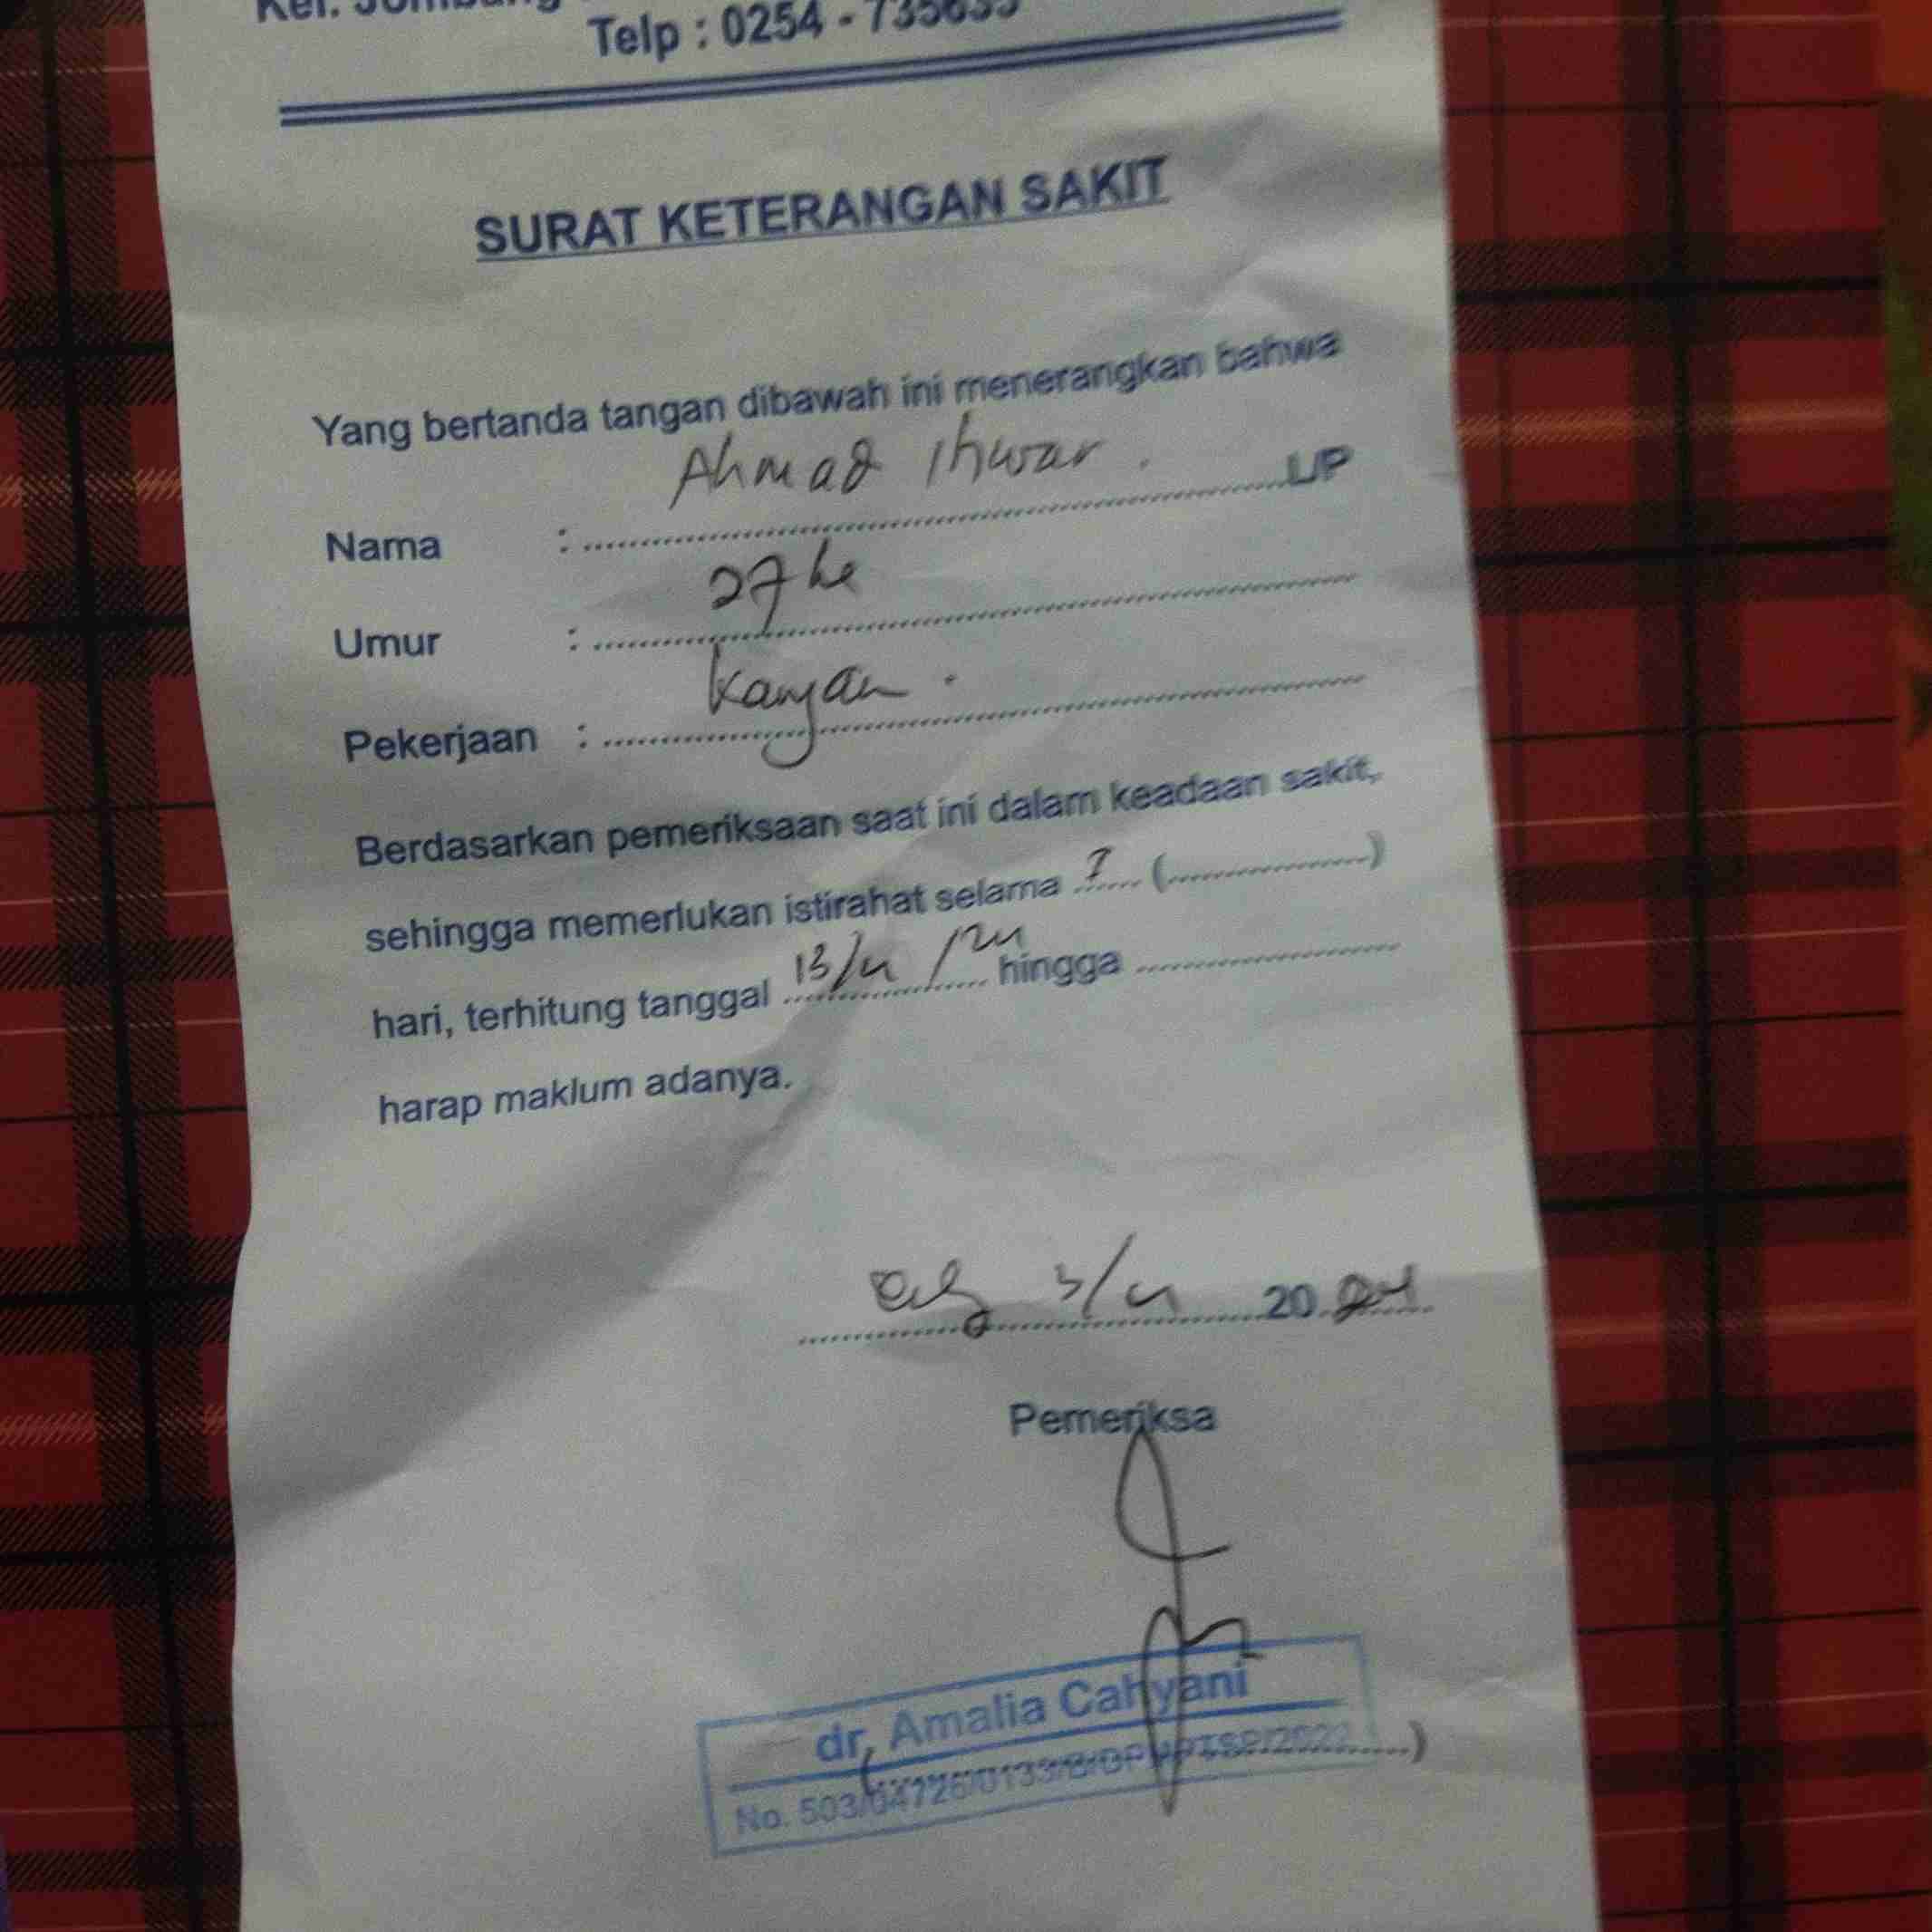 Kel. Jombang
Telp : 0254 - 735635
SURAT KETERANGAN SAKIT
Yang bertanda tangan dibawah ini menerangkan bahwa
Nama : Ahmad Ihwar. L/P
Umur : 27
Pekerjaan :
Berdasarkan pemeriksaan saat ini dalam keadaan sakit,
sehingga memerlukan istirahat selama (..............)
hari, terhitung tanggal hingga ..............
harap maklum adanya.
20
Pemeriksa
dr. Amalia Cahyani
No. 503/04726/0133/B/DPMPTSP/2022